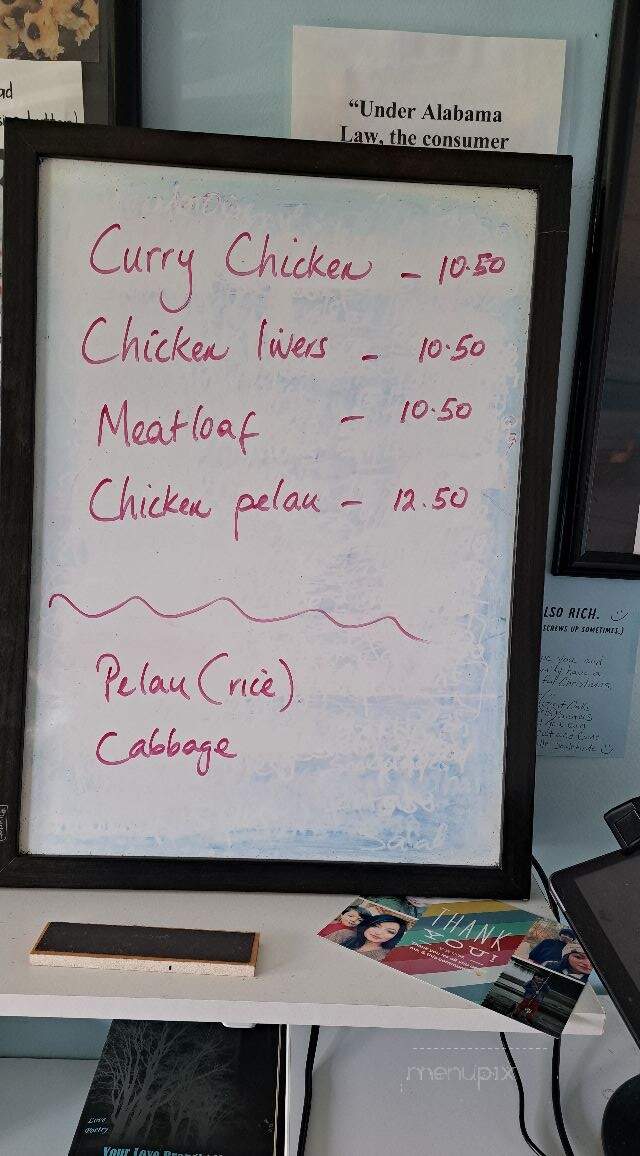 ad
"Under Alabama
Law, the consumer
Curry Chicken - 10.50
Chicken livers - 10.50
Meatloaf - 10.50
Chicken pelau - 12.50
Pelau (rice)
Cabbage
Salad
LSO RICH.
SCREWS UP SOMETIMES.)
THANK
YOU!
menupix
Love
Poetry